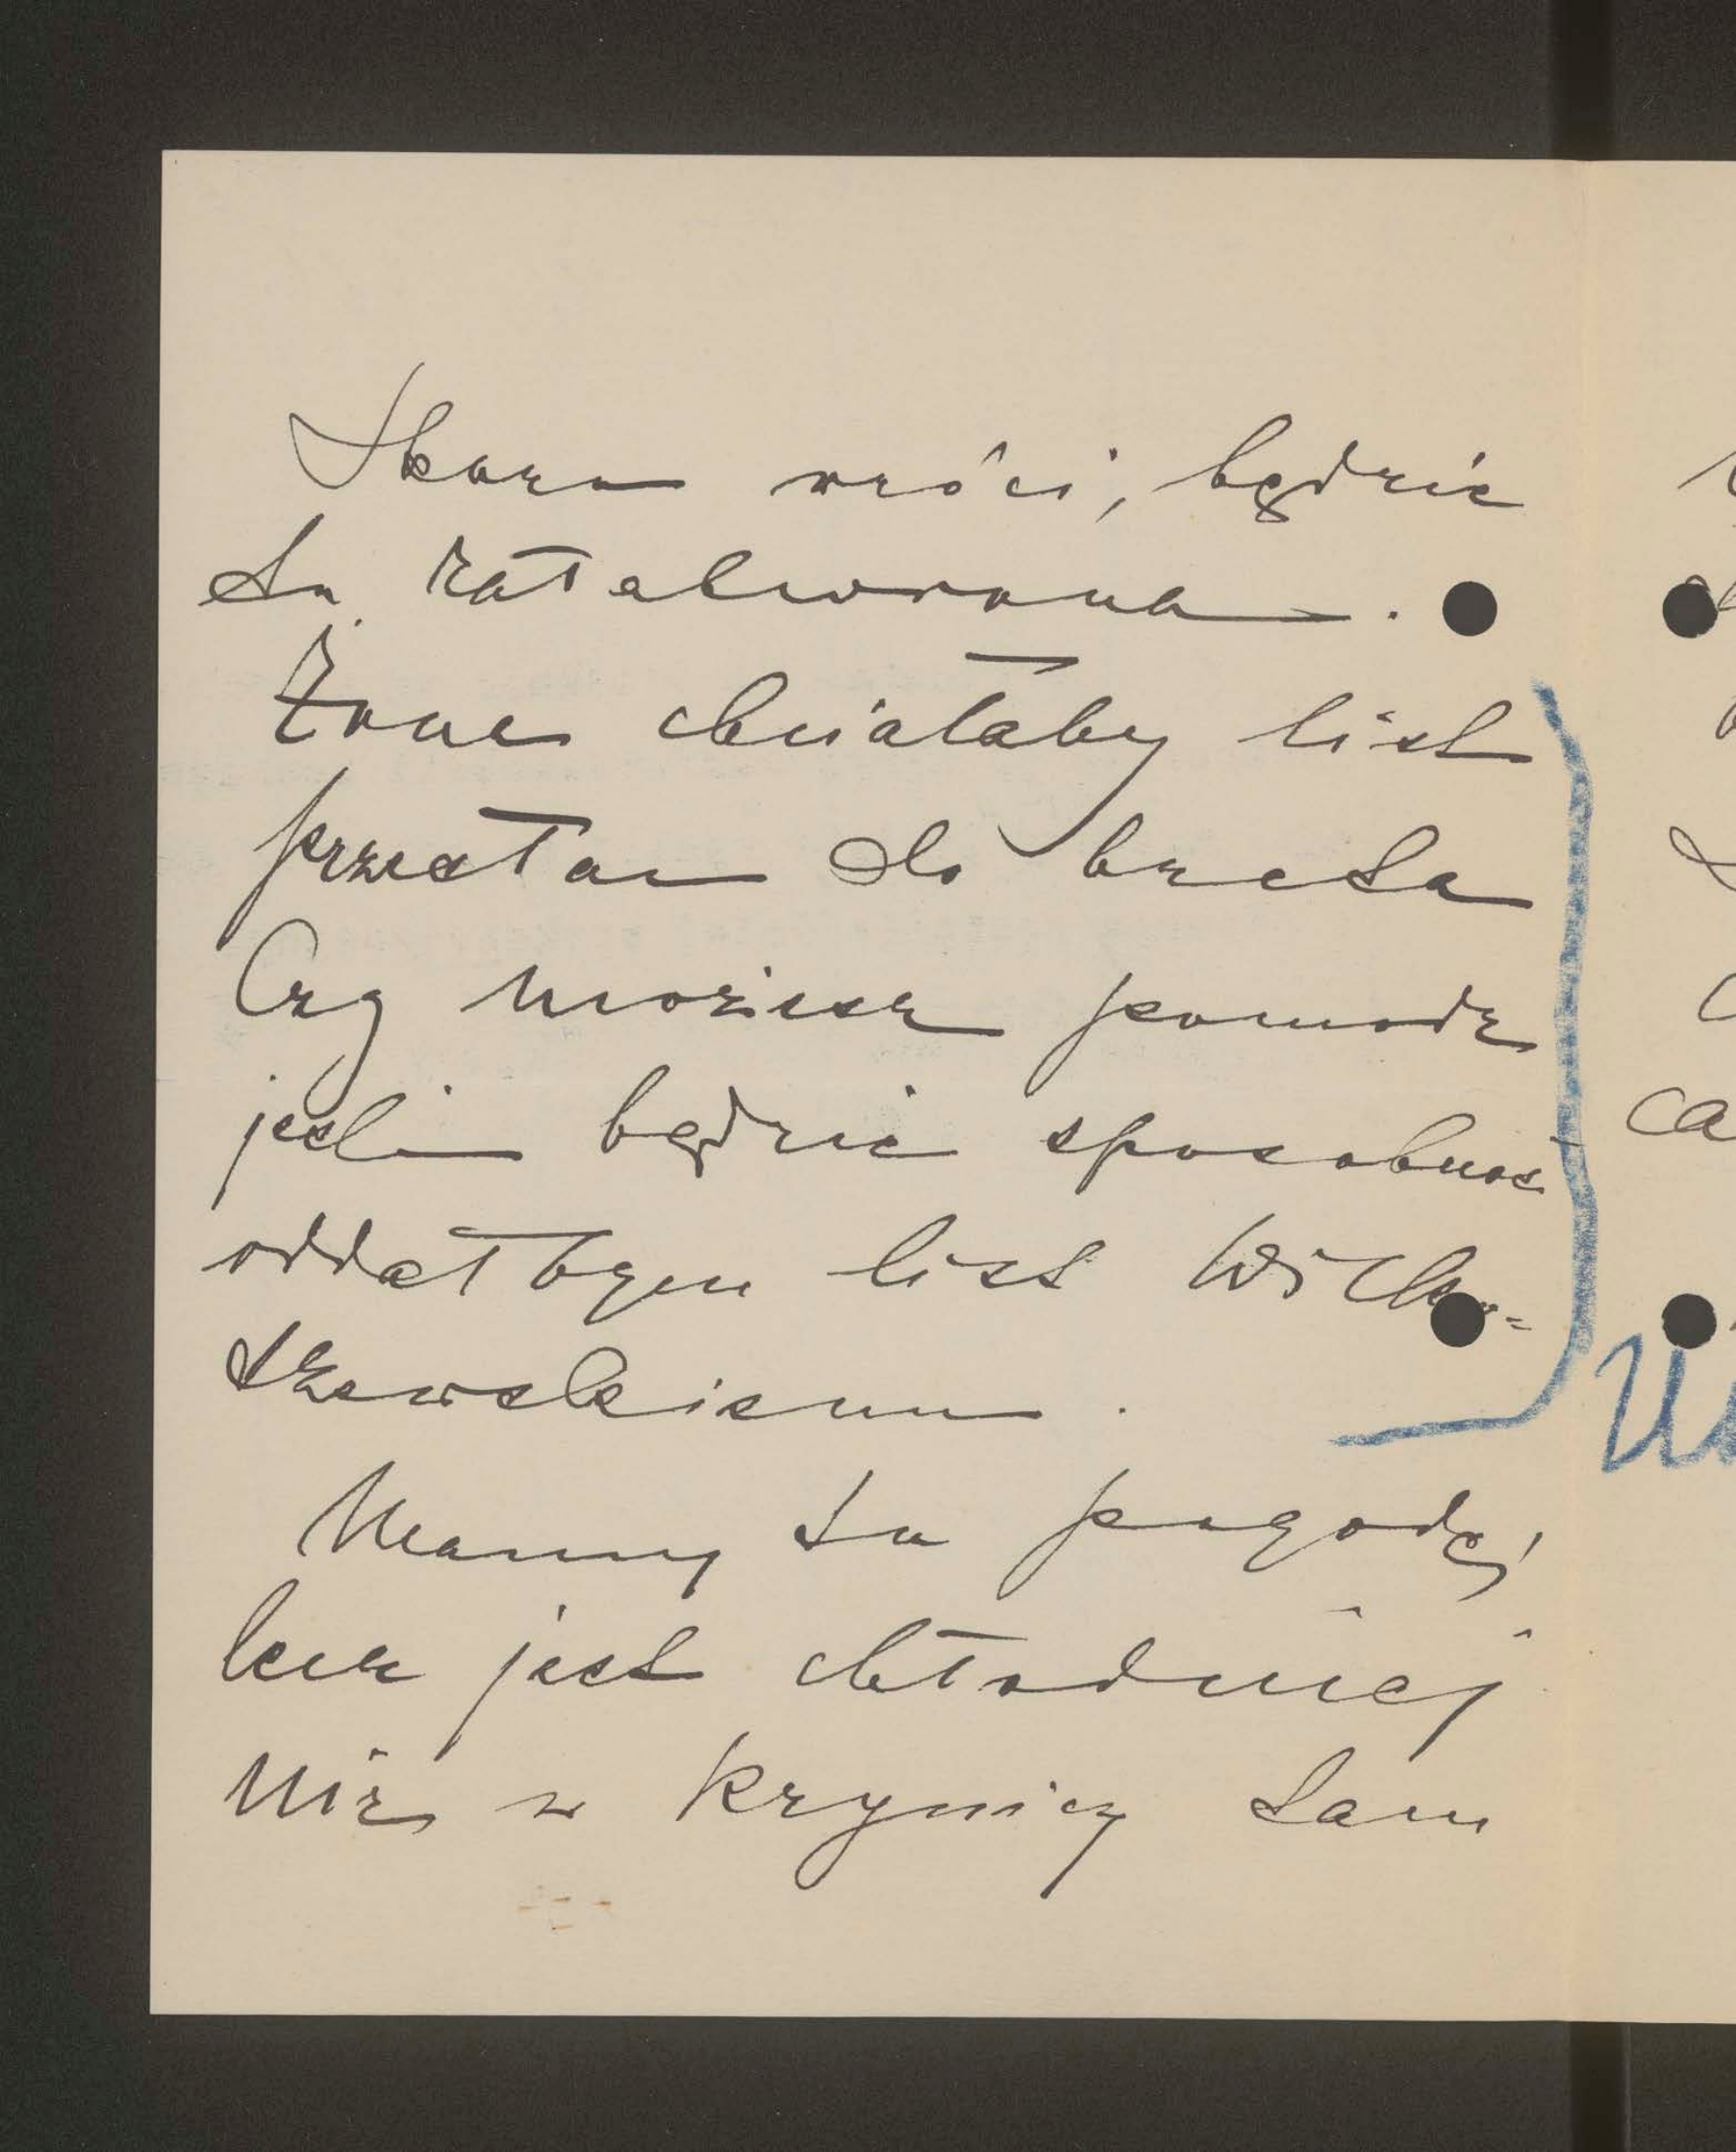 Skoro wróci, będzie
to załatwione.
Żona chciałaby list
przesłać do brata
Czy możesz pomódz
jeśli będzie sposobnoś
oddałbym list Wicho-
towskiemu.
Mamy tu pogodę,
lecz jest chłodniej
niż w Krynicy tam